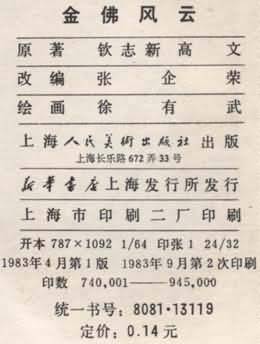 金佛风云
原著 钦志新 高文
改编 张企荣
绘画 徐有武
上海人民美術出版社出版
上海长乐路672弄33号
新华书店上海发行所发行
上海市印刷二厂印刷
开本 787×1092 1/64 印张 1 24/32
1983年4月第1版 1983年9月第2次印刷
印数 740,001——945,000
统一书号：8081·13119
定价：0.14元